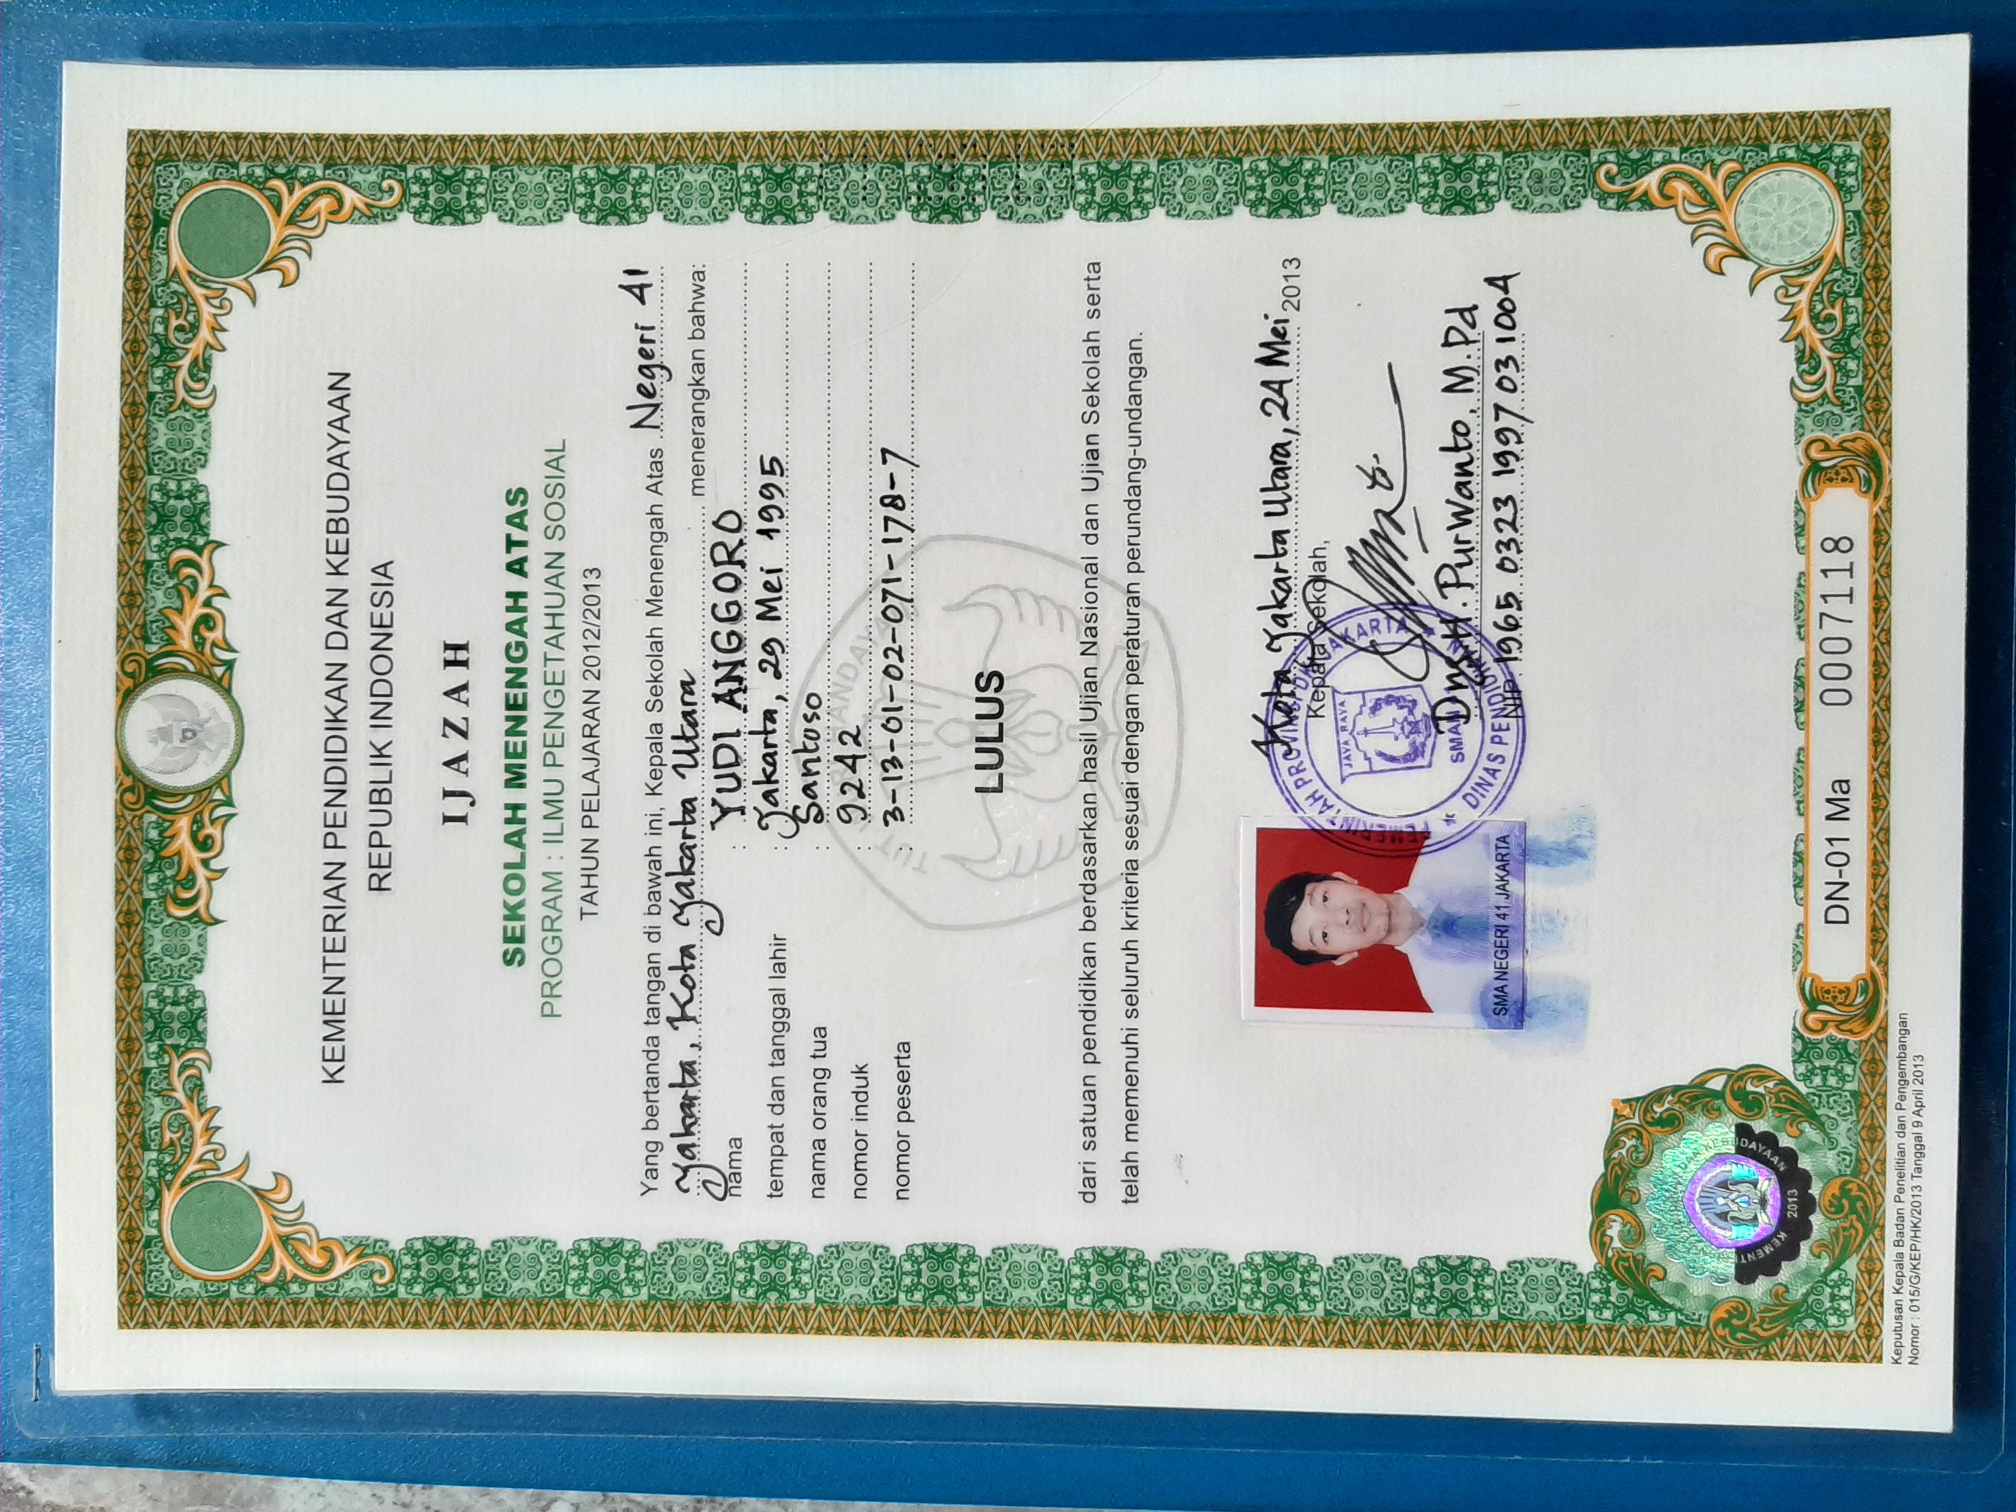 KEMENTERIAN PENDIDIKAN DAN KEBUDAYAAN
REPUBLIK INDONESIA
IJAZAH
SEKOLAH MENENGAH ATAS
PROGRAM : ILMU PENGETAHUAN SOSIAL
TAHUN PELAJARAN 2012/2013
Yang bertanda tangan di bawah ini, Kepala Sekolah Menengah Atas Negeri 41
Jakarta, Kota Jakarta Utara menerangkan bahwa:
nama : YUDI ANGGORO
tempat dan tanggal lahir : Jakarta, 29 Mei 1995
nama orang tua : Santoso
nomor induk : 9242
nomor peserta : 3-13-01-02-071-178-7
TUT HANDAYANI
LULUS
dari satuan pendidikan berdasarkan hasil Ujian Nasional dan Ujian Sekolah serta
telah memenuhi seluruh kriteria sesuai dengan peraturan perundang-undangan.
Kota Jakarta Utara, 24 Mei 2013
Kepala Sekolah,
PEMERINTAH PROVINSI DKI JAKARTA
JAYA RAYA
SMAN
DINAS PENDIDIKAN
Drs. H. Purwanto, M.Pd
NIP. 1965 0323 1997 03 1004
SMA NEGERI 41 JAKARTA
2013
DN-01 Ma 0007118
Keputusan Kepala Badan Penelitian dan Pengembangan
Nomor : 015/G/KEP/HK/2013 Tanggal 9 April 2013